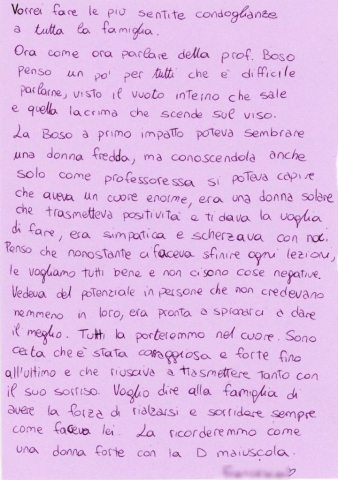 Vorrei fare le più sentite condoglianze
a tutta la famiglia.
Ora come ora parlare della prof. Boso
penso un po' per tutti che è difficile
parlarne, visto il vuoto interno che sale
e quella lacrima che scende sul viso.
La Boso a primo impatto poteva sembrare
una donna fredda, ma conoscendola anche
solo come professoressa si poteva capire
che aveva un cuore enorme, era una donna solare
che trasmetteva positività e ti dava la voglia
di fare, era simpatica e scherzava con noi.
Penso che nonostante ci faceva sfinire ogni lezioni,
le vogliamo tutti bene e non ci sono cose negative.
Vedeva del potenziale in persone che non credevano
nemmeno in loro, era pronta a spronarci a dare
il meglio. Tutti la porteremmo nel cuore. Sono
certa che è stata coraggiosa e forte fino
all'ultimo e che riusciva a trasmettere tanto con
il suo sorriso. Voglio dire alla famiglia di
avere la forza di rialzarsi e sorridere sempre
come faceva lei. La ricorderemmo come
una donna forte con la D maiuscola.